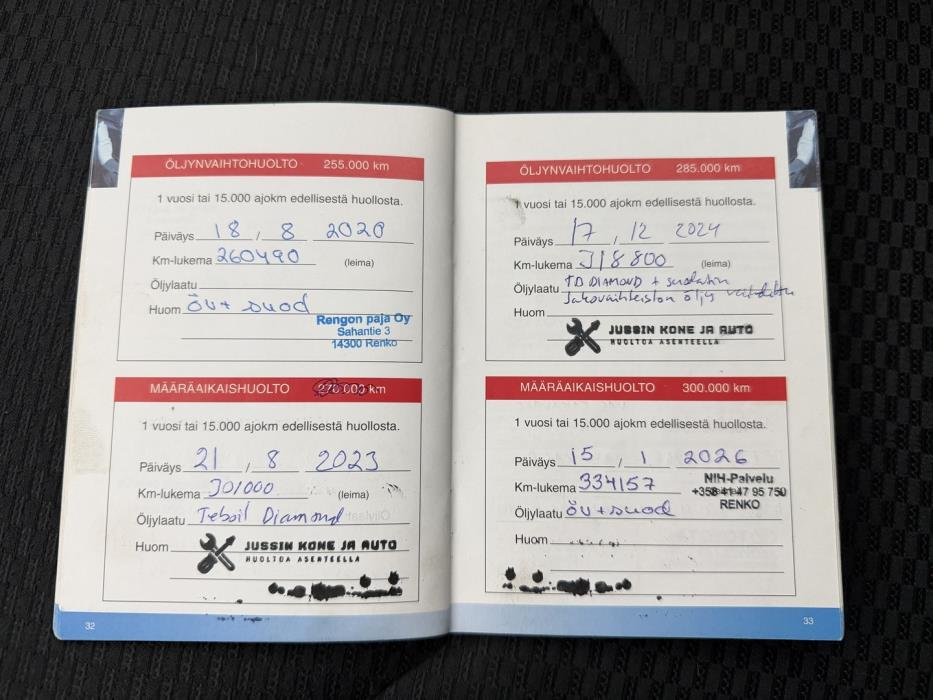 ÖLJYNVAIHTOHUOLTO 255.000 km
1 vuosi tai 15.000 ajokm edellisestä huollosta.
Päiväys 18 / 8 2020
Km-lukema 260490 (leima)
Öljylaatu
Huom öv+suod
Rengon paja Oy
Sahantie 3
14300 Renko
MÄÄRÄAIKAISHUOLTO 270.000 km
1 vuosi tai 15.000 ajokm edellisestä huollosta.
Päiväys 21 / 8 2023
Km-lukema 301000 (leima)
Öljylaatu Teboil Diamond
Huom
JUSSIN KONE JA AUTO
HUOLTOA ASENTEELLA
32
ÖLJYNVAIHTOHUOLTO 285.000 km
1 vuosi tai 15.000 ajokm edellisestä huollosta.
Päiväys 17 / 12 2024
Km-lukema 318800 (leima)
Öljylaatu TB DIAMOND + suodatin
Jakovaihteiston öljy vaihdettu
Huom
JUSSIN KONE JA AUTO
HUOLTOA ASENTEELLA
MÄÄRÄAIKAISHUOLTO 300.000 km
1 vuosi tai 15.000 ajokm edellisestä huollosta.
Päiväys 15 / 1 2026
Km-lukema 334157
NIH-Palvelu
+358 41 47 95 750
RENKO
Öljylaatu öv+suod
Huom
33